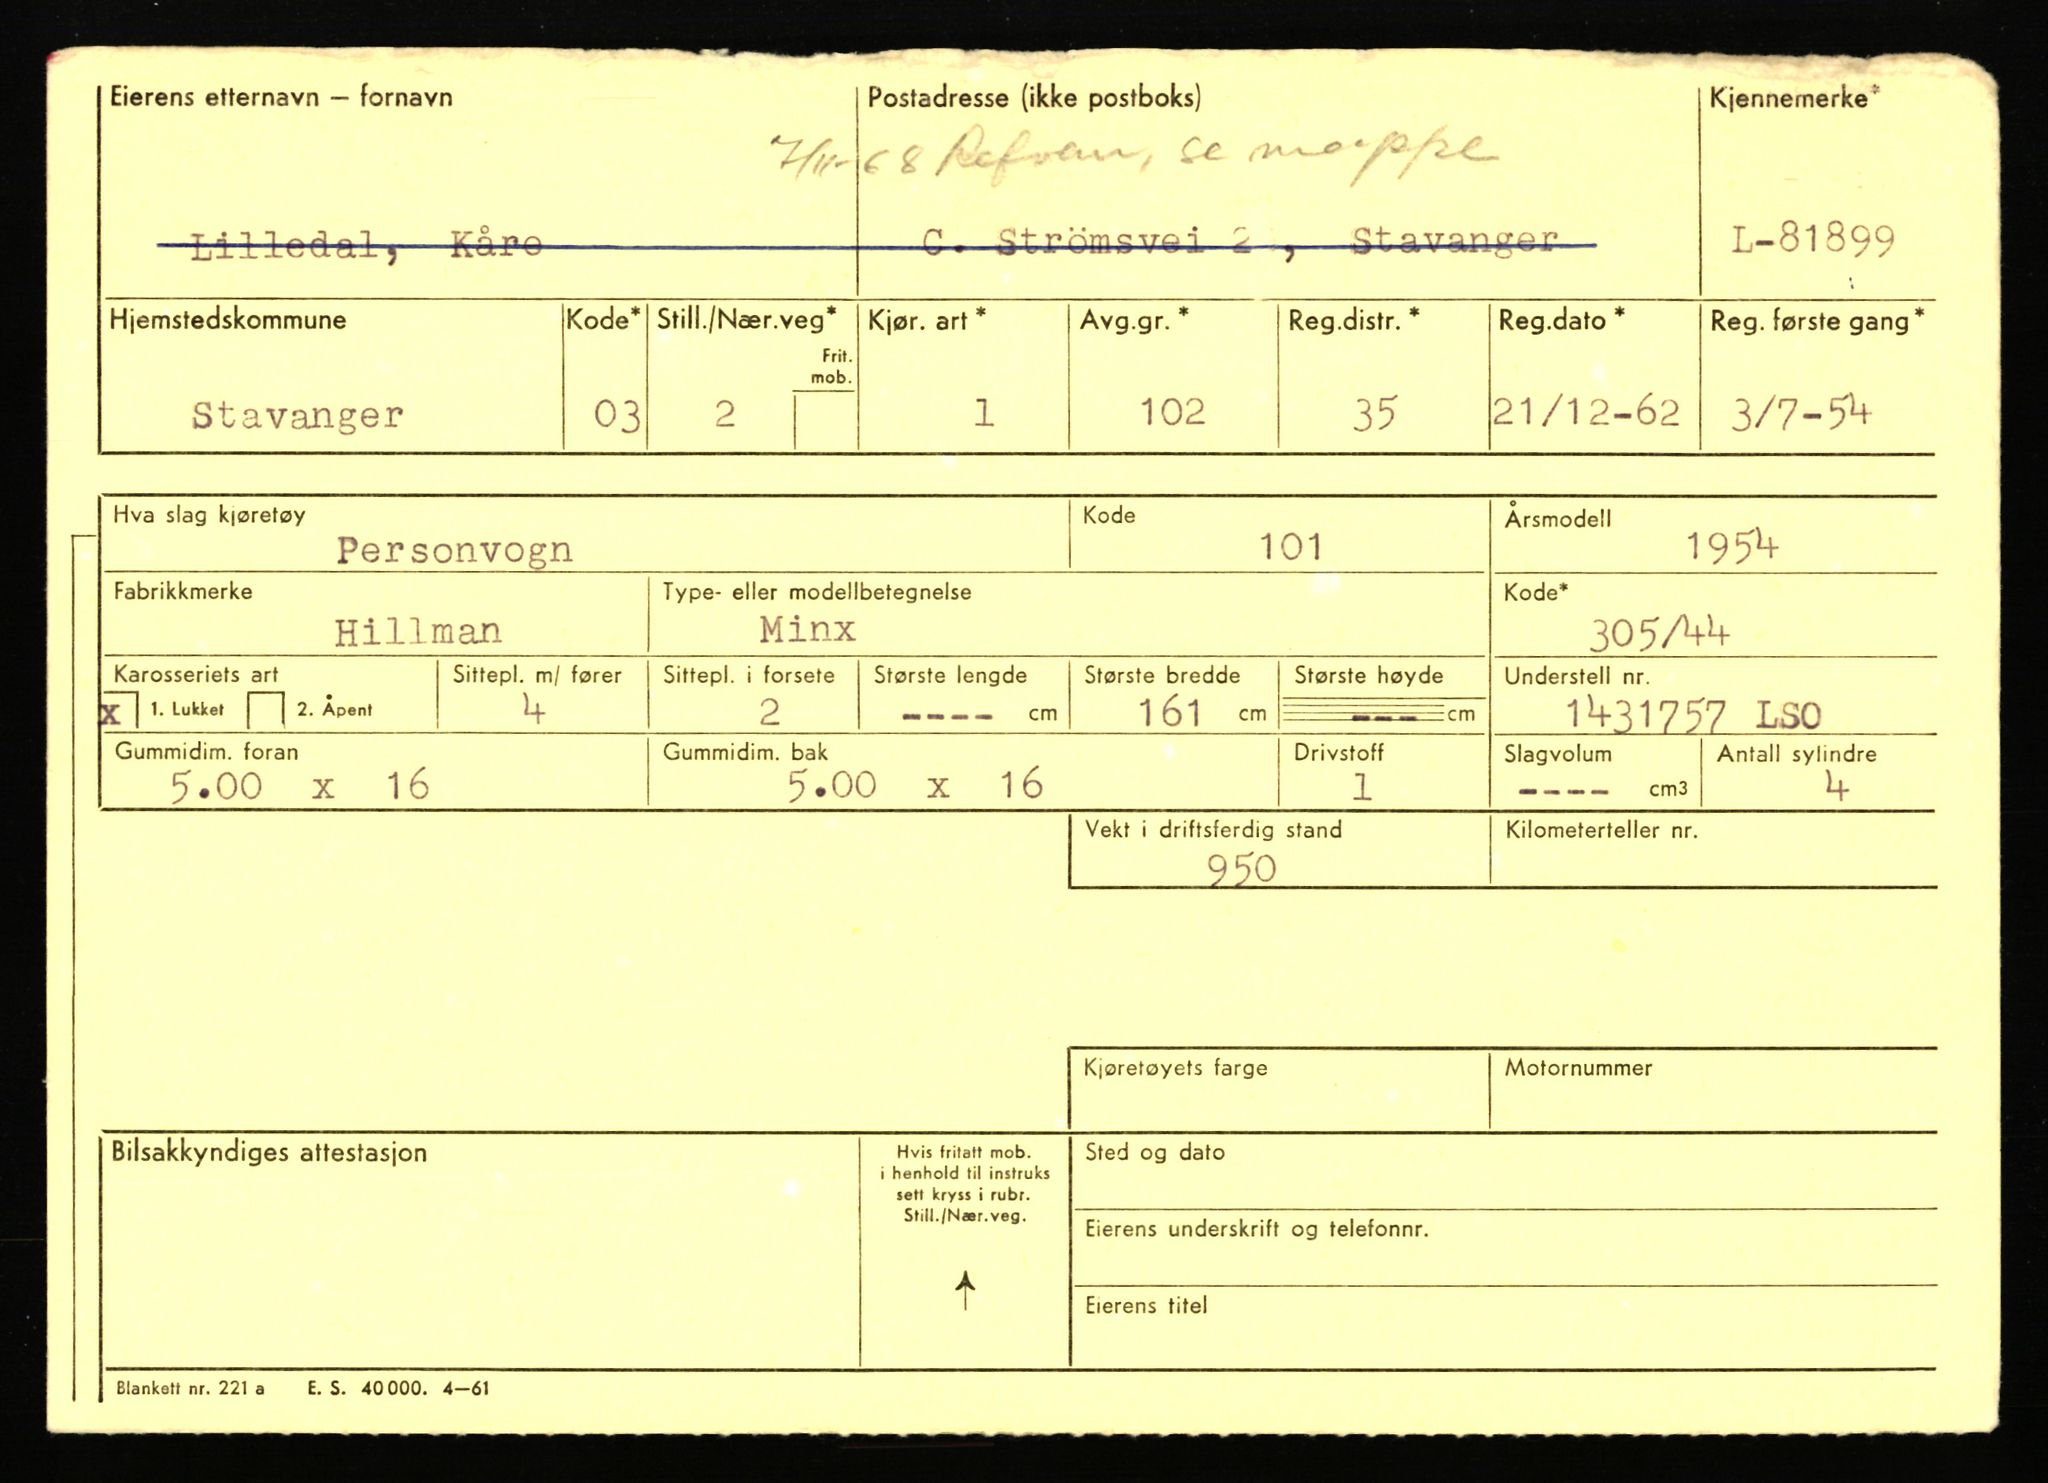 Eierens etternavn – fornavn Postadresse (ikke postboks) Kjennemerke*
7/11-68 se mappe
Lilledal, Kåre C. Strömsvei 2 , Stavanger L-81899
Hjemstedskommune Kode* Still./Nær.veg* Kjør. art * Avg.gr. * Reg.distr. * Reg.dato * Reg. første gang*
Frit.
mob.
Stavanger 03 2 1 102 35 21/12-62 3/7-54
Hva slag kjøretøy Kode Årsmodell
Personvogn 101 1954
Fabrikkmerke Type- eller modellbetegnelse Kode*
Hillman Minx 305/44
Karosseriets art Sittepl. m/ fører Sittepl. i forsete Største lengde Største bredde Største høyde Understell nr.
x 1. Lukket 2. Åpent 4 2 ---- cm 161 cm --- cm 1431757 LSO
Gummidim. foran Gummidim. bak Drivstoff Slagvolum Antall sylindre
5.00 x 16 5.00 x 16 1 ---- cm3 4
Vekt i driftsferdig stand Kilometerteller nr.
950
Kjøretøyets farge Motornummer
Bilsakkyndiges attestasjon Hvis fritatt mob. Sted og dato
i henhold til instruks
sett kryss i rubr.
Still./Nær.veg.
Eierens underskrift og telefonnr.
Eierens titel
Blankett nr. 221 a E. S. 40 000. 4–61